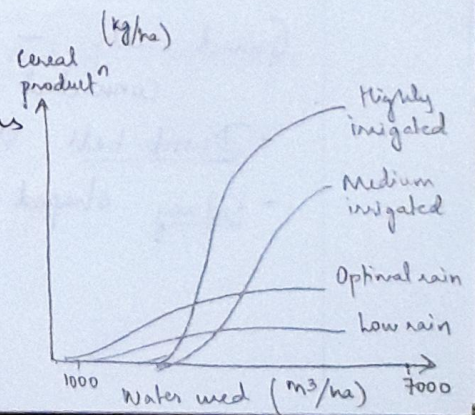 (kg/ha)
Cereal
productⁿ
Highly
irrigated
Medium
irrigated
Optimal rain
Low rain
1000
7000
Water used (m³/ha)